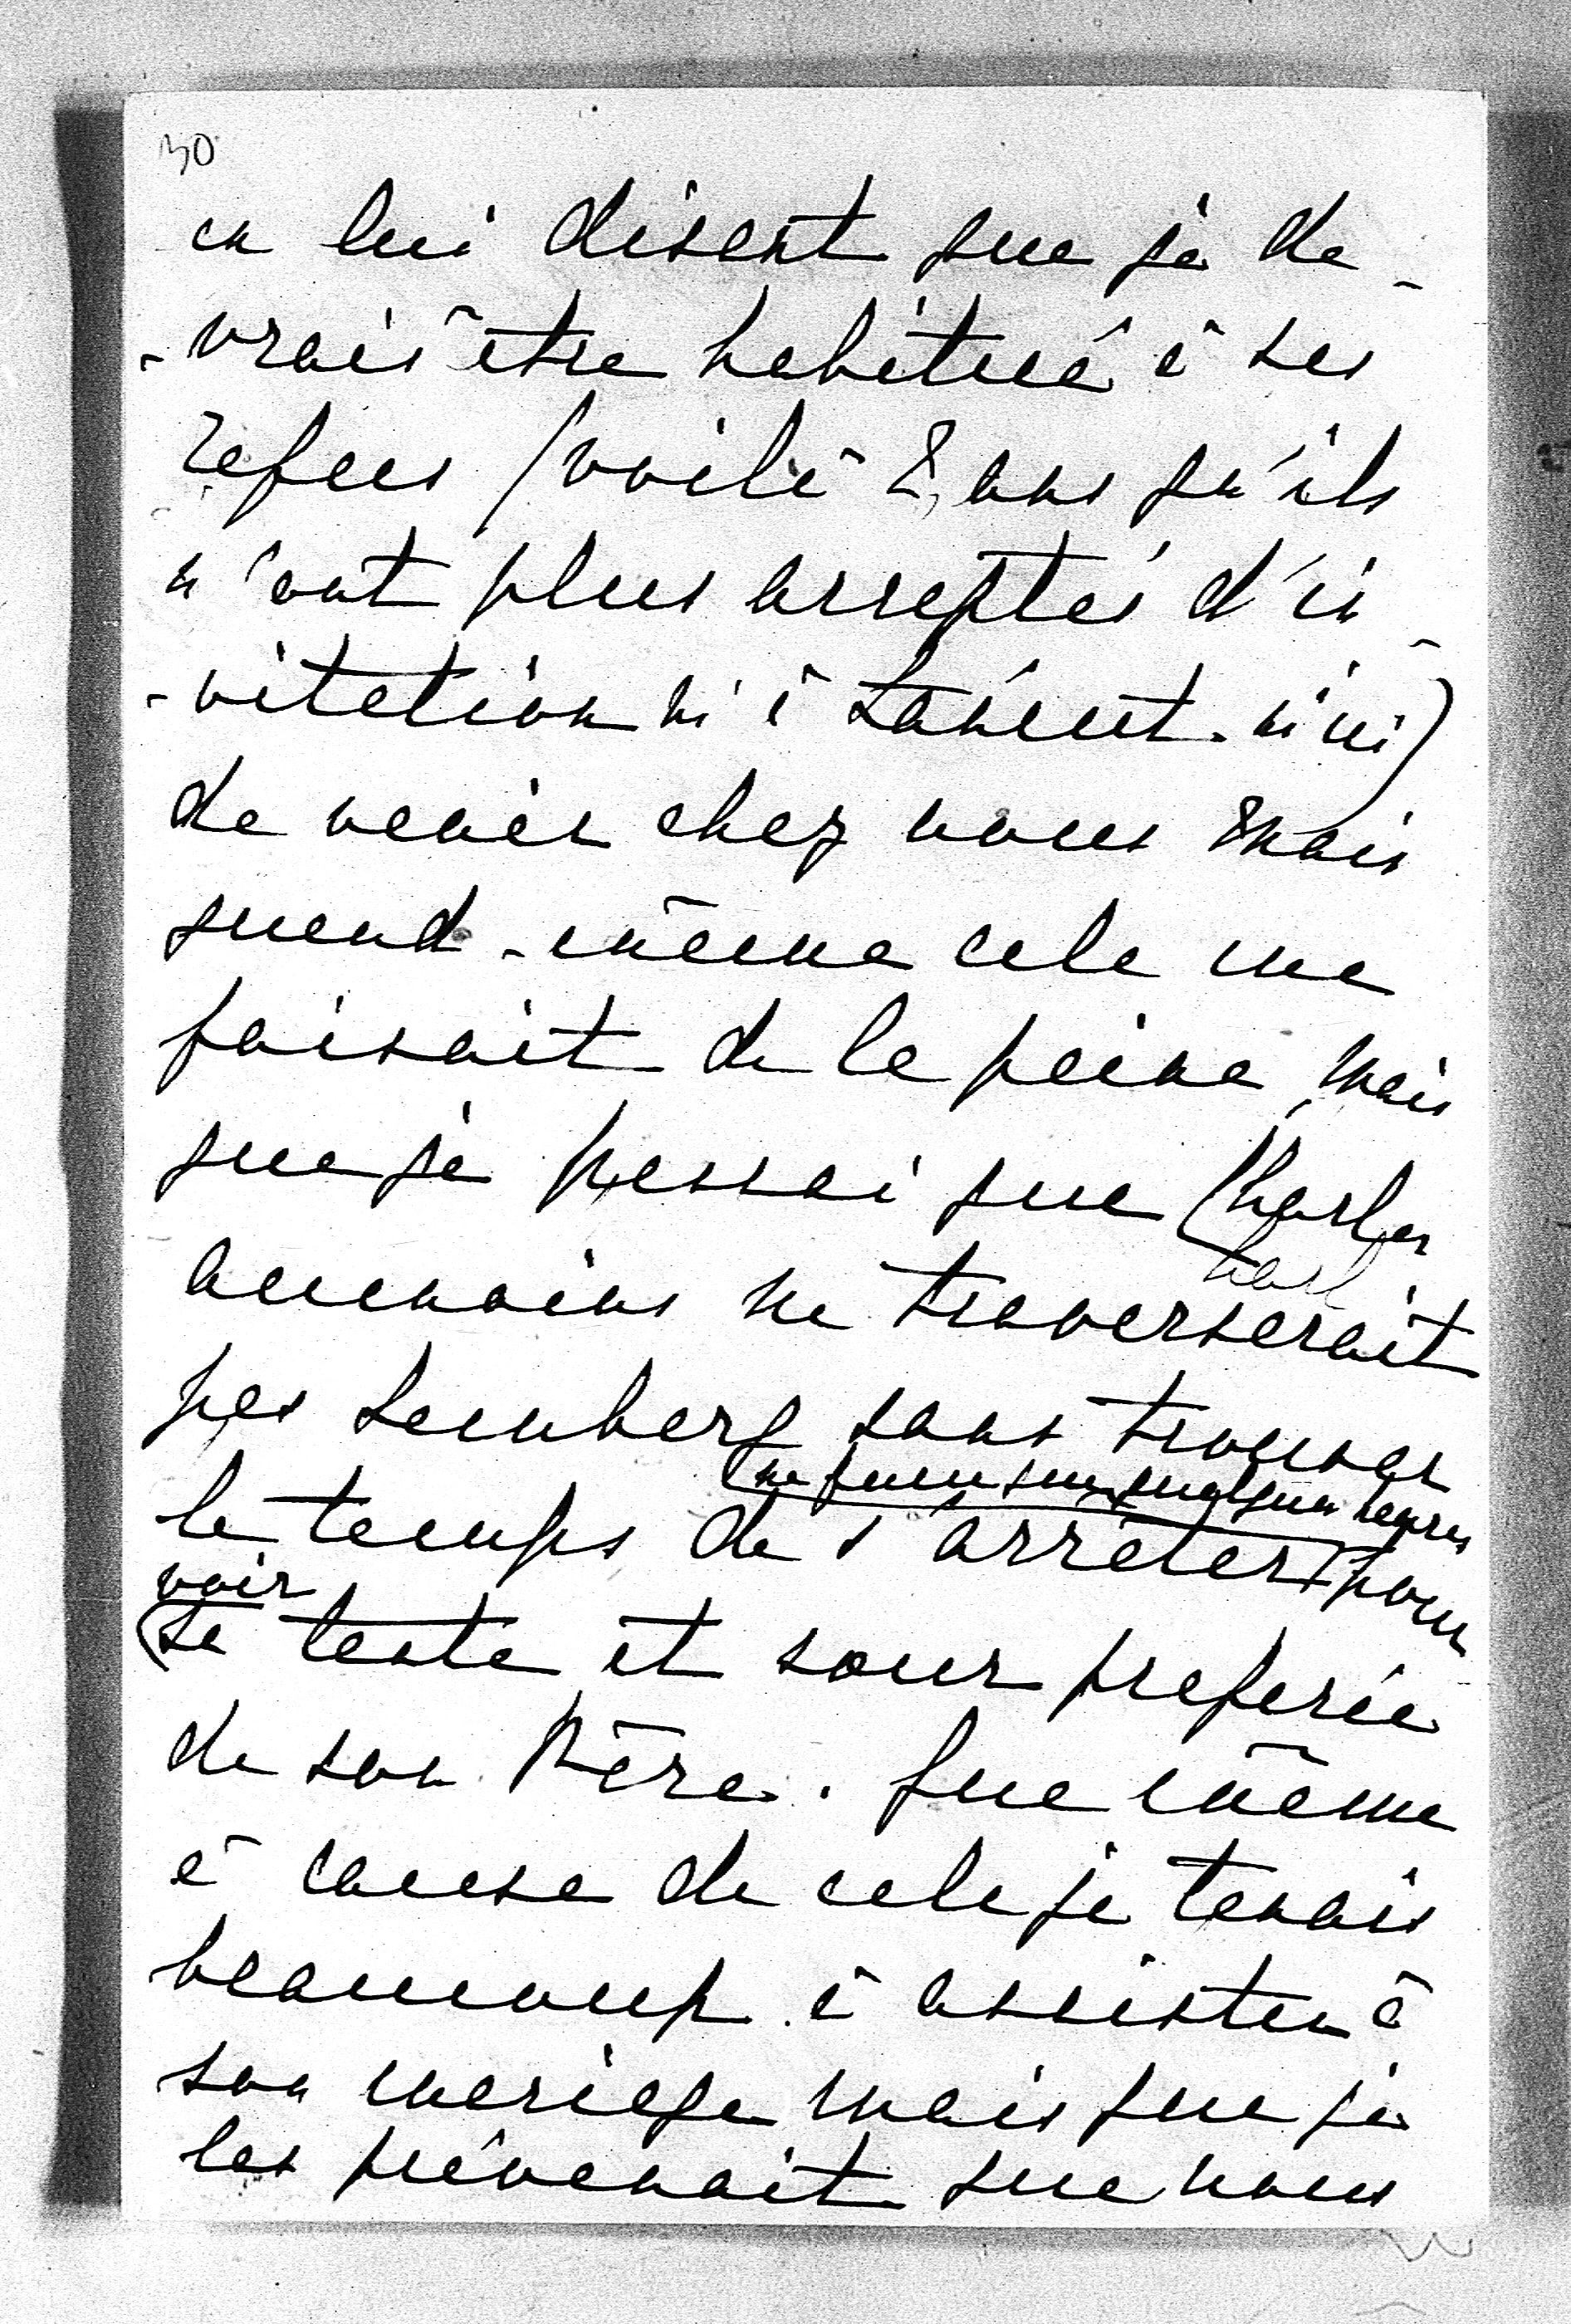 30
en lui disent que je de-
-vrais être habitué à ses
refus (voilà 2 ans qu'ils
n'ont plus acceptés d'in-
-vitation ni à Lancut ni ici)
de venir chez nous mais
quand-même cela me
faisait de la peine, mais
que je pensai que Charles
aumoins ne traverserait
pas Lemberg sans trouver
(ne fusse que quelques heures
le temps de s'arrêter pour
voir
(sa tante et sœur preferée
de son Père. Que même
à cause de cela je tenais
beaucoup à assister à
son mariage mais que je
les prévenait que nous